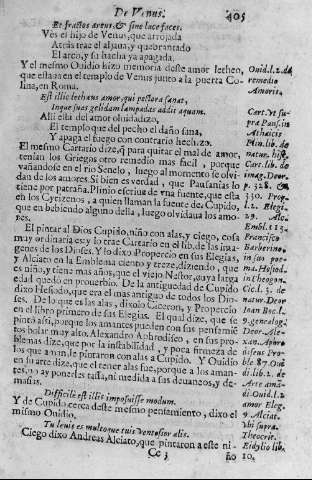 De Venus. 405
Et fractos arcus, & sine luce faces.
Vès el hijo de Venus, que arrojada
Atràs trae el aljaua, y quebrantado
El arco, y su hacha ya apagada.
Y el mesmo Ouidio hizo memoria deste amor letheo,
que estaua en el templo de Venus junto a la puerta Co-
lina, en Roma.
Est illic lethæus amor, qui pectora sanat,
Inque suas gelidam lampadas addit aquam.
Allì està del amor oluidadizo,
El templo que del pecho el daño sana,
Y apaga el fuego con contrario hechizo.
El mesmo Cartario dize, q̃ para quitar el mal de amor,
tenian los Griegos otro remedio mas facil, porque
vañandose en el rio Seleno, luego al momento se olvi-
dan de los amores. Si bien es verdad, que Pausanias lo
tiene por patraña. Plinio escriue de vna fuente, que està
en los Cyrizenos, a quien llaman la fuente de Cupido,
que en bebiendo alguno della, luego oluidaua los amo-
res.
El pintar al Dios Cupido, niño con alas, y ciego, cosa
muy ordinaria es: y lo trae Cartario en el lib. de las ima-
genes de los Dioses. Y lo dixo Propercio en sus Elegias,
y Alciato en la Emblema ciento y treze, diziendo, que
es niño, y tiene mas años, que el viejo Nestor, cuya larga
edad quedò en prouerbio. De la antiguedad de Cupido
dixo Hesiodo, que era el mas antiguo de todos los Dio-
ses. De lo que es las alas, dixolo Ciceron, y Propercio
en el libro primero de sus Elegias. El qual dize, que se
pintò assi, porque los amantes pueden con sus pensamiẽ
tos bolar muy alto. Alexandro Aphrodiseo, en sus pro-
blemas dize, que por la instabilidad, y poca firmeza de
los que aman, le pintaron con alas a Cupido. Y Ouidio
en su arte dize, que el tener alas fue, porque a los aman-
tes, no ay ponerles tassa, ni medida a sus deuaneos, y de-
masias.
Difficile est illis imposuisse modum.
Y de Cupido cerca deste mesmo pensamiento, dixo el
mismo Ouidio.
Tu leuis es multoque tuis ventosior alis.
Ciego dixo Andreas Alciato, que pintaron a este ni-
Cc 3 ño
Ouid. l. 2. de
remedio
Amoris.
Cart. vt su-
pra Paus. in
Athaicis
Plin. lib. de
natur. hist.
Cart. lib. de
imag. Deor.
p. 328. &
330. Pro.
l. 2. Elegi.
29. Alc.
Embl. 113.
Francisco
Barberino,
in suo poe-
ma. Hesiod.
in Theogon
Cic. l. 3. de
natur. Deor
Ioan Boc. l.
9. genealog.
Deor. Ale-
xan. Aphro
diseus Pro-
ble 87. Oui
di. lib. 2. de
Arte amã-
di Ouid. l. 2
amor Eleg.
9. Alciat.
vbi supra.
Theocrit.
Eidylio lib.
10.